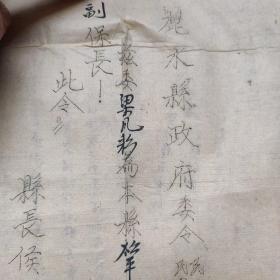 麗水縣政府委令
茲委梁凡彩為本縣
副保長！
此令。
縣長侯